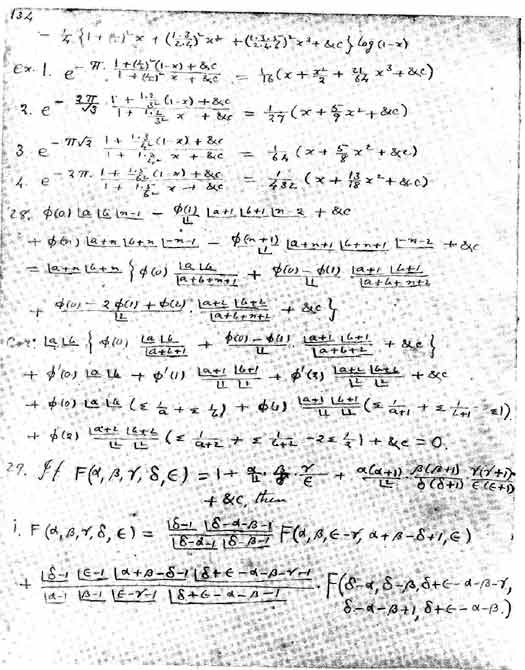 134
- 1/4 {1 + (1/2)² x + (1·3/2·4)² x² + (1·3·5/2·4·6)² x³ + &c} log(1-x)
Ex. 1. e^{-π · (1 + (1/2)²(1-x) + &c)/(1 + (1/2)² x + &c)} = 1/16 (x + x²/2 + 21/64 x³ + &c)
2. e^{-2π/√3 · (1 + 1·2/3² (1-x) + &c)/(1 + 1·2/3² x + &c)} = 1/27 (x + 5/9 x² + &c)
3. e^{-π√2 (1 + 1·3/4² (1-x) + &c)/(1 + 1·3/4² x + &c)} = 1/64 (x + 5/8 x² + &c)
4. e^{-2π · (1 + 1·5/6² (1-x) + &c)/(1 + 1·5/6² x + &c)} = 1/432 (x + 13/18 x² + &c)
28. φ(0) |a |b |n-1 - φ(1)/|1 |a+1 |b+1 |n-2 + &c
+ φ(n) |a+n |b+n |-n-1 - φ(n+1)/|1 |a+n+1 |b+n+1 |-n-2 + &c
= |a+n |b+n { φ(0) |a |b / |a+b+n+1 + (φ(0) - φ(1))/|1 · |a+1 |b+1 / |a+b+n+2
+ (φ(0) - 2φ(1) + φ(2))/|2 · |a+2 |b+2 / |a+b+n+3 + &c }
Cor. |a |b { φ(0) |a |b / |a+b+1 + (φ(0) - φ(1))/|1 · |a+1 |b+1 / |a+b+2 + &c }
+ φ'(0) |a |b + φ'(1) |a+1 |b+1 / |1 |1 + φ'(2) |a+2 |b+2 / |2 |2 + &c
+ φ(0) |a |b (Σ 1/a + Σ 1/b) + φ(1) |a+1 |b+1 / |1 |1 (Σ 1/a+1 + Σ 1/b+1 - 2Σ1)
+ φ(2) |a+2 |b+2 / |2 |2 (Σ 1/a+2 + Σ 1/b+2 - 2Σ 1/2) + &c = 0.
29. If F(α, β, γ, δ, ε) = 1 + α/|1 · β/δ · γ/ε + α(α+1)/|2 · β(β+1)/δ(δ+1) · γ(γ+1)/ε(ε+1)
+ &c, then
i. F(α, β, γ, δ, ε) = |δ-1 |δ-α-β-1 / |δ-α-1 |δ-β-1 F(α, β, ε-γ, α+β-δ+1, ε)
+ |δ-1 |ε-1 |α+β-δ-1 |δ+ε-α-β-γ-1 / |α-1 |β-1 |ε-γ-1 |δ+ε-α-β-1 · F(δ-α, δ-β, δ+ε-α-β-γ,
δ-α-β+1, δ+ε-α-β.)